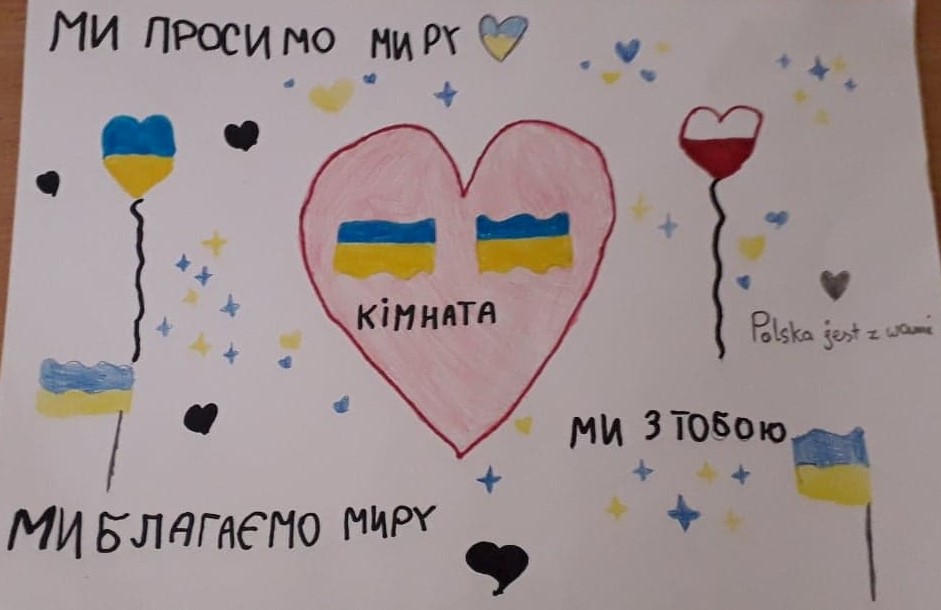 МИ ПРОСИМО МИРУ
КІМНАТА
Polska jest z wami
МИ З ТОБОЮ
МИ БЛАГАЄМО МИРУ